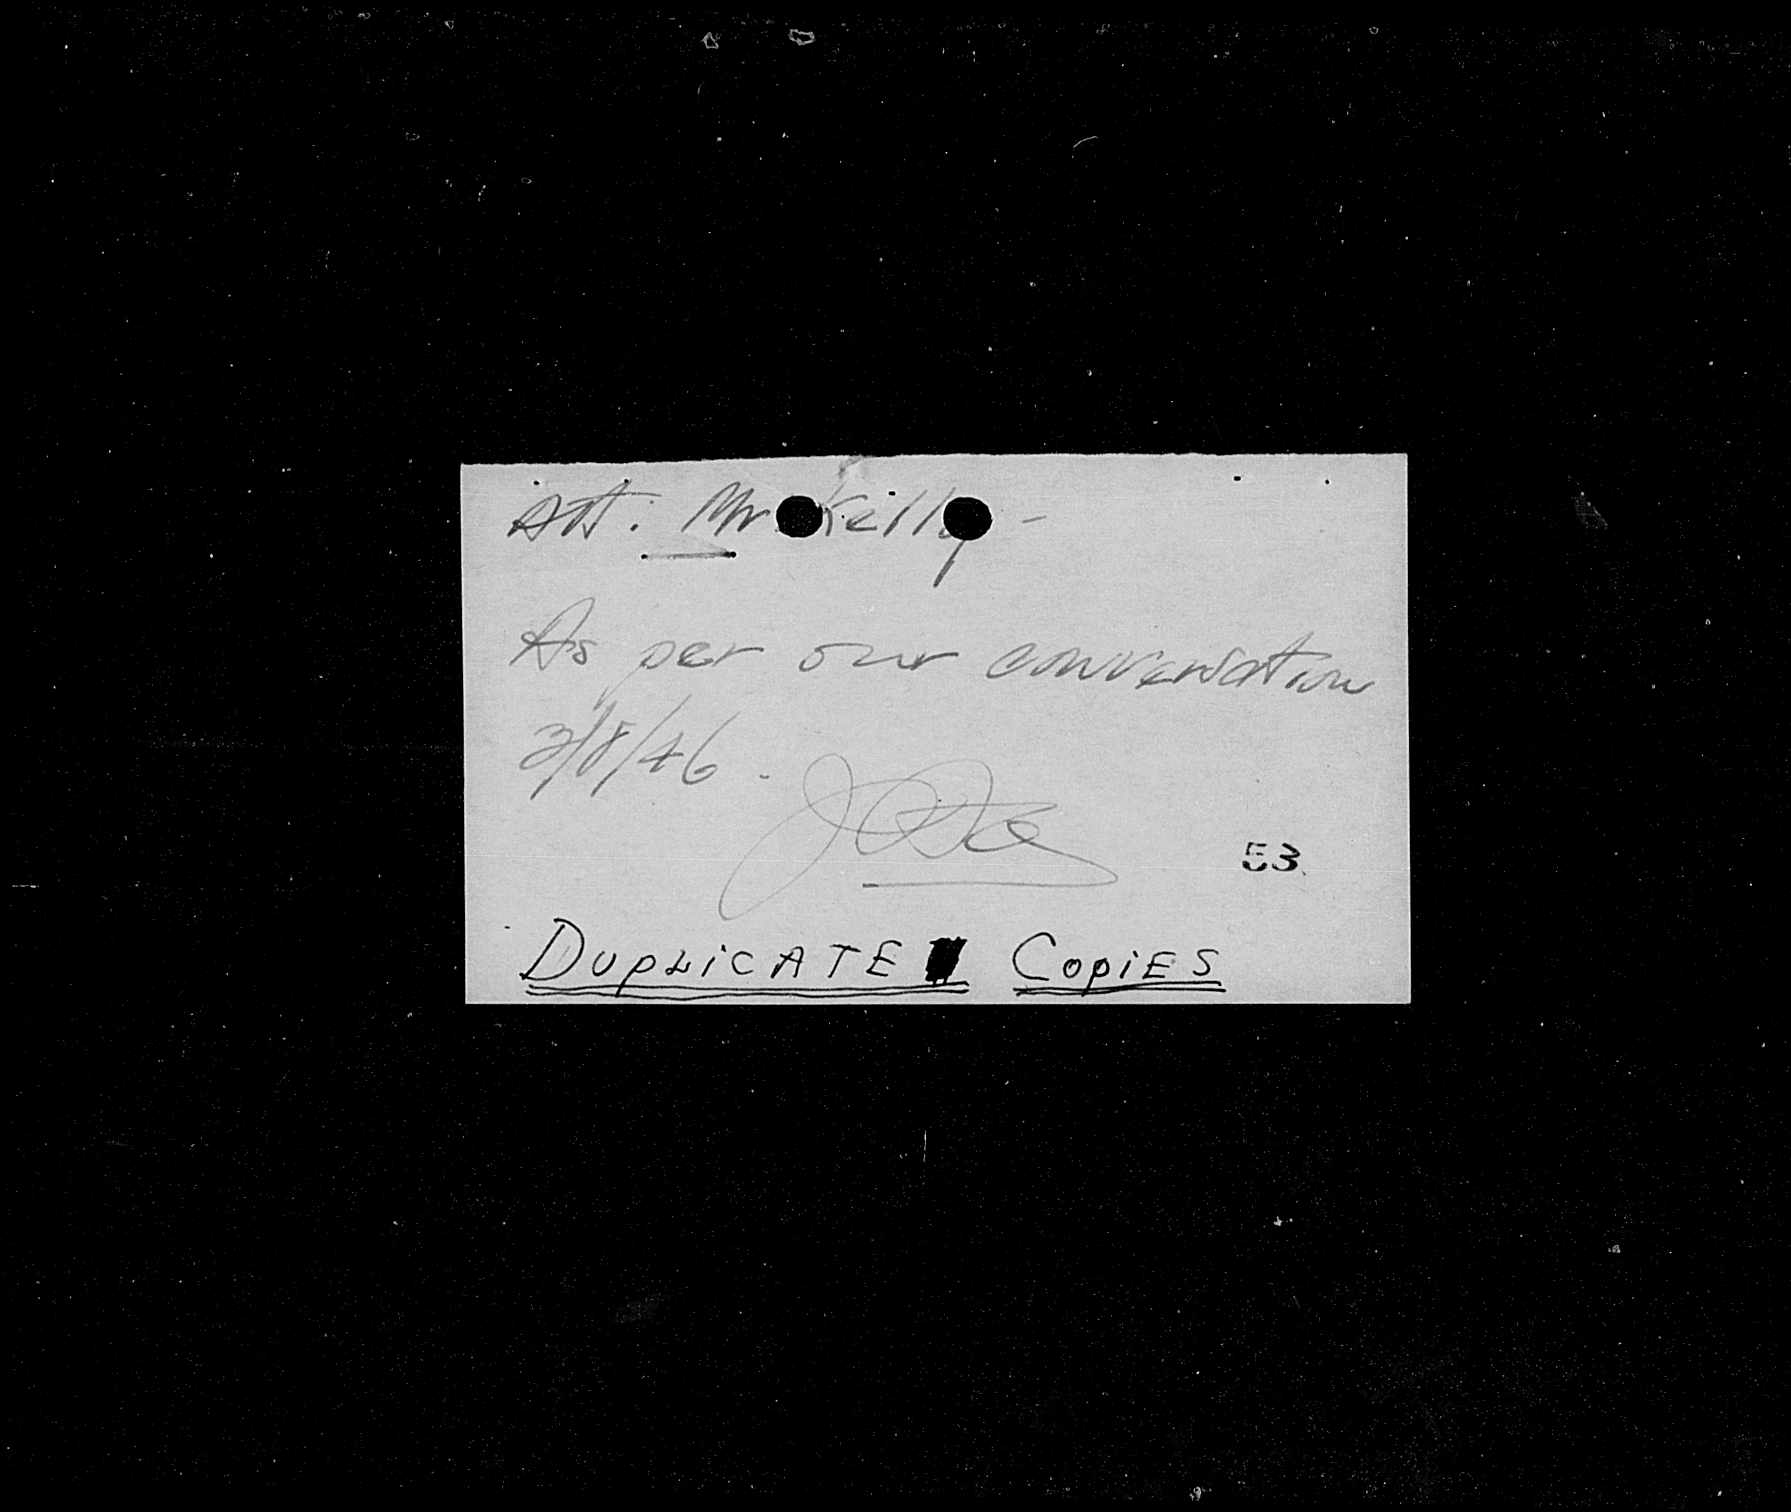 Att: Mr. Kelly -
As per our conversation
3/8/46.
53
DUPLICATE COPIES